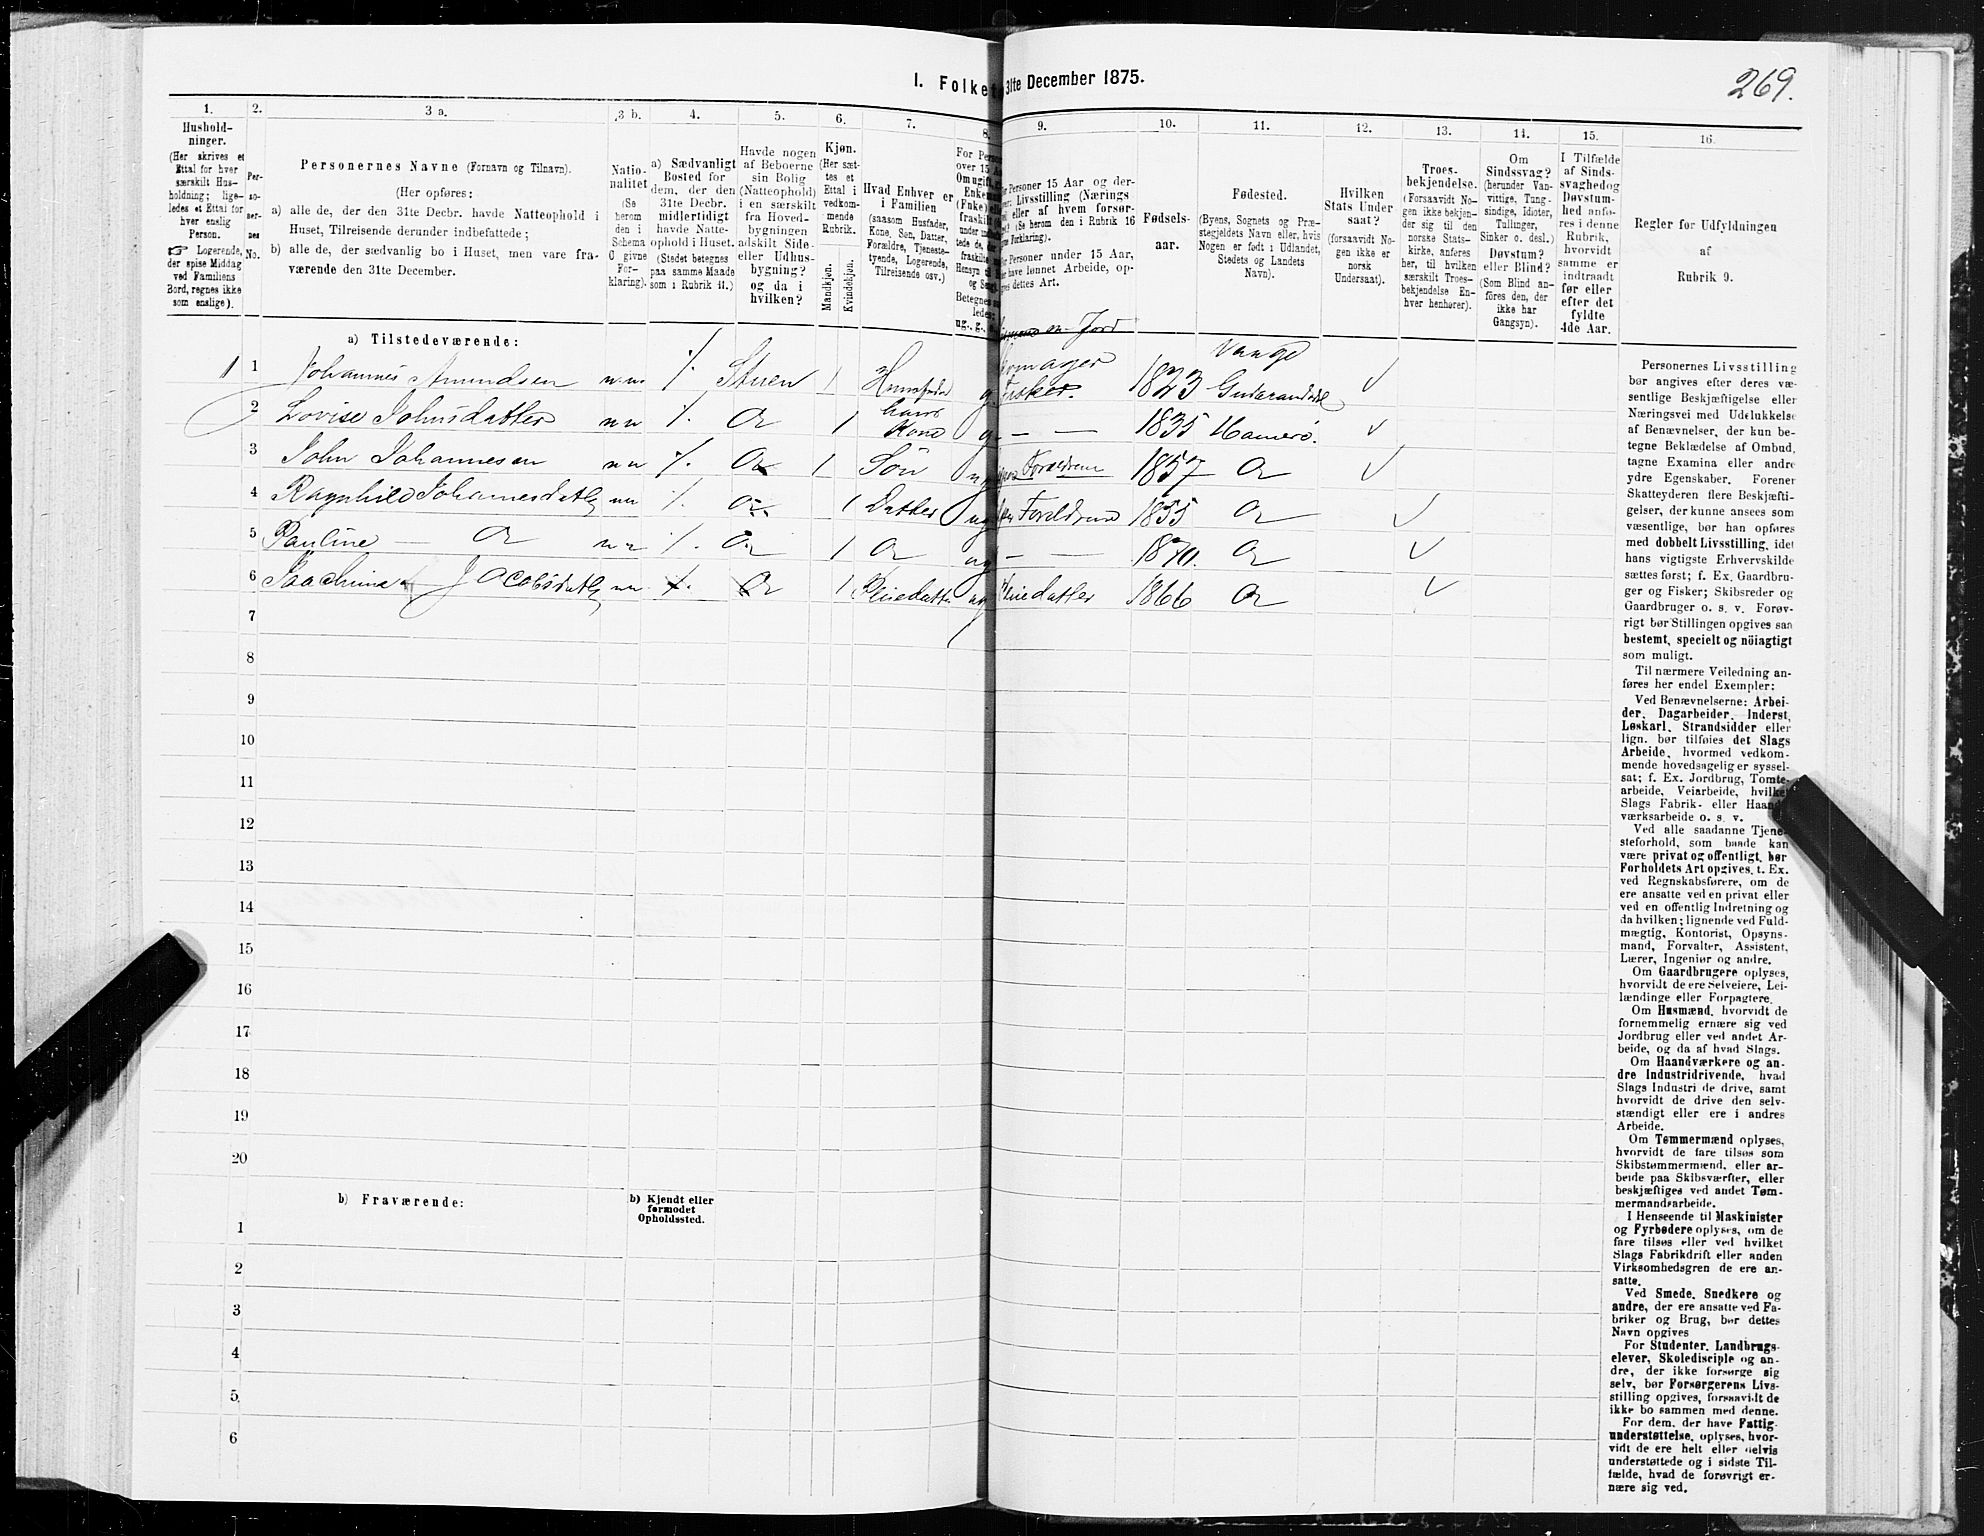 I. Folke 31te December 1875.
269.
1. 2. 3 a. 3 b. 4. 5. 6. 7. 8. 9. 10. 11. 12. 13. 14. 15. 16
Hushold-
ninger.
(Her skrives et
Ettal for hver
særskilt Hus-
holdning; lige-
ledes et Ettal for
hver enslig
Person.
☞ Logerende,
der spise Middag
ved Familiens
Bord, regnes ikke
som enslige).
Per-
so-
ner-
nes
No.
Personernes Navne (Fornavn og Tilnavn).
(Her opføres:
a) alle de, der den 31te Decbr. havde Natteophold i
Huset, Tilreisende derunder indbefattede;
b) alle de, der sædvanlig bo i Huset, men vare fra-
værende den 31te December.
Natio-
nalitet
(Se
herom
den i
Schema
O givne
For-
klaring).
a) Sædvanligt
Bosted for
dem, der den
31te Decbr.
midlertidigt
havde Natte-
ophold i Huset.
(Stedet betegnes
paa samme Maade
som i Rubrik 11.)
Havde nogen
af Beboerne
sin Bolig
(Natteophold)
i en særskilt
fra Hoved-
bygningen
adskilt Side-
eller Udhus-
bygning?
og da i
hvilken?
Kjøn.
(Her sæt-
tes et
Ettal i
vedkom-
mende
Rubrik.
Mandkjøn.
Kvindekjøn.
Hvad Enhver er
i Familien
(saasom Husfader,
Kone, Søn, Datter,
Forældre, Tjeneste-
tyende, Logerende,
Tilreisende osv.)
For Pers
over 15 A
Om ugift,
Enkem
(Fnke) el
fraskil
Betegnes
ledes:
ug., g.,
Personer 15 Aar og der-
: Livsstilling (Nærings
ei eller af hvem forsør-
? (Se herom den i Rubrik 16
e Forklaring).
Personer under 15 Aar,
have lønnet Arbeide, op-
es dettes Art.
Fødsels-
aar.
Fødested.
(Byens, Sognets og Præ-
stegjeldets Navn eller, hvis
Nogen er født i Udlandet,
Stedets og Landets
Navn).
Hvilken
Stats Under
saat?
(forsaavidt No-
gen ikke er
norsk
Undersaat).
Troes-
bekjendelse.
(Forsaavidt No-
gen ikke bekjen-
der sig til den
norske Stats-
kirke, anføres
her, til hvilken
særskilt Troes-
bekjendelse En-
hver henhører).
Om
Sindssvag?
(herunder Van-
vittige, Tung-
sindige, Idioter,
Tullinger,
Sinker o. desl.)
Døvstum?
eller Blind?
(Som Blind an-
føres den, der
ikke har
Gangsyn).
I Tilfælde
af Sinds-
svaghedog
Døvstum-
hed anfø-
res i denne
Rubrik,
hvorvidt
samme er
indtraadt
før eller
efter det
fyldte
4de Aar.
Regler for Udfyldningen
af
Rubrik 9.
a) Tilstedeværende:
Jord
Vange
1 1 Johannes Amundsen n.n. ⁒ Stuen 1 Huusfader g. Fisker. 1823
2 Lovise Johnsdatter nn ⁒ Do 1 hans Kone g. — — 1835 Hamerø.
3 John Johannesen nn ⁒ Do 1 Søn ug Foreldrene 1857 Do
4 Ragnhild Johannesdatt nn ⁒ Do 1 Datter ug Foreldrene 1855 Do
5 Pauline — Do nn ⁒ Do 1 Do ug — — 1870. Do
6 Jacobsdatt nn ⁒ Do 1 Pleiedatt ug Pleiedatter 1866 Do
7
8
9
10
11
12
13
14
15
16
17
18
19
20
b) Fraværende: b) Kjendt eller
formodet
Opholdssted.
1
2
3
4
5
6
Personernes Livsstilling
bør angives efter deres væ-
sentlige Beskjæftigelse eller
Næringsvei med Udelukkelse
af Benævnelser, der kun be-
tegne Beklædelse af Ombud,
tagne Examina eller andre
ydre Egenskaber. Forener
Skatteyderen flere Beskjæfti-
gelser, der kunne ansees som
væsentlige, bør han opføres
med dobbelt Livsstilling, idet
hans vigtigste Erhvervskilde
sættes først; f. Ex. Gaardbru-
ger og Fisker; Skibsreder og
Gaardbruger o. s. v. Forøv-
rigt bør Stillingen opgives saa
bestemt, specielt og nöiagtigt
som muligt.
Til nærmere Veiledning an-
føres her endel Exempler:
Ved Benævnelserne: Arbei-
der, Dagarbeider, Inderst,
Løskarl, Strandsidder eller
lign. bør tilføies det Slags
Arbeide, hvormed vedkom-
mende hovedsagelig er syssel-
sat; f. Ex. Jordbrug, Tomte-
arbeide, Veiarbeide, hvilket
Slags Fabrik- eller Haand-
værksarbeide o. s. v.
Ved alle saadanne Tjene-
steforhold, som baade kan
være privat og offentligt, bør
Forholdets Art opgives, t. Ex.
ved Regnskabsførere, om de
ere ansatte ved en privat eller
ved en offentlig Indretning og
da hvilken; lignende ved Fuld-
mægtig, Kontorist, Opsyns-
mand, Forvalter, Assistent,
Lærer, Ingeniør og andre.
Om Gaardbrugere oplyses,
hvorvidt de ere Selveiere, Lei-
lændinge eller Forpagtere.
Om Husmænd, hvorvidt de
fornemmelig ernære sig ved
Jordbrug eller ved andet Ar-
beide, og da af hvad Slags.
Om Haandværkere og an-
dre Industridrivende, hvad
Slags Industri de drive, samt
hvorvidt de drive den selv-
stændigt eller ere i andres
Arbeide.
Om Tømmermænd oplyses,
hvorvidt de fare tilsøs som
Skibstømmermænd, eller ar-
beide paa Skibsværfter, eller
beskjæftiges ved andet Tøm-
mermandsarbeide.
I Henseende til Maskinister
og Fyrbødere oplyses, om de
fare tilsøs eller ved hvilket
Slags Fabrikdrift eller anden
Virksomhedsgren de ere an-
satte.
Ved Smede, Snedkere og
andre, der ere ansatte ved Fa-
briker og Brug, bør dettes
Navn opgives
For Studenter, Landbrugs-
elever, Skoledisciple og an-
dre, der ikke forsørge sig
selv, bør Forsørgerens Livs-
stilling opgives, forsaavidt de
ikke bo sammen med denne.
For dem, der have Fattig-
understøttelse, oplyses, hvor-
vidt de ere helt eller delvis
understøttede og i sidste Til-
fælde, hvad de forøvrigt er-
nære sig ved.